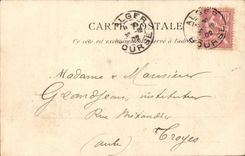 CARTE POSTALE
Ce côté est exclusivement réservé à l'adresse
ALGER
BOURSE
ALGER
BOURSE
Madame & Monsieur
Grandjean, instituteur
Rue
(Aube) Troyes